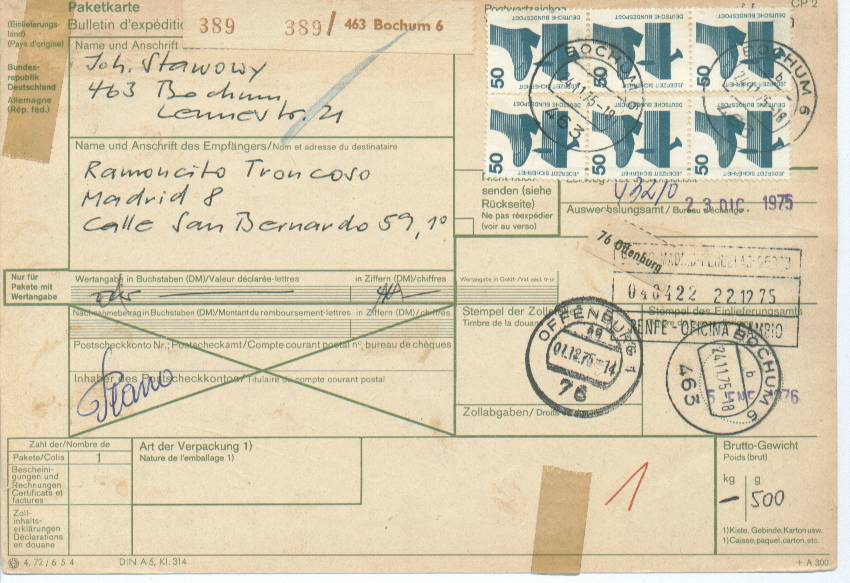 Paketkarte
CP 2
Bulletin d'expéditio
389
389/ 463 Bochum 6
(Einlieferungs-
land)
(Pays d'origine)
Bundes-
republik
Deutschland
Allemagne
(Rép. féd.)
Name und Anschrift
Joh. Stawowy
463 Bochum
Lennestr. 21
Name und Anschrift des Empfängers/Nom et adresse du destinataire
Ramoncito Troncoso
Madrid 8
Calle San Bernardo 59, 1º
DEUTSCHE BUNDESPOST
50
JEDERZEIT SICHERHEIT
DEUTSCHE BUNDESPOST
50
JEDERZEIT SICHERHEIT
DEUTSCHE BUNDESPOST
50
JEDERZEIT SICHERHEIT
DEUTSCHE BUNDESPOST
50
JEDERZEIT SICHERHEIT
DEUTSCHE BUNDESPOST
50
JEDERZEIT SICHERHEIT
DEUTSCHE BUNDESPOST
50
JEDERZEIT SICHERHEIT
BOCHUM 6
24.11.75-18
463
BOCHUM 6
b
463
senden (siehe
Rückseite)
Ne pas réexpédier
(voir au verso)
Auswechslungsamt / Bureau d'échange
23 DIC. 1975
76 Offenburg
040422 22.12 75
RENFE - OFICINA CAMBIO
Nur für
Pakete mit
Wertangabe
Wertangabe in Buchstaben (DM)/Valeur déclarée-lettres
in Ziffern (DM)/chiffres
Nachnahmebetrag in Buchstaben (DM)/Montant du remboursement-lettres
in Ziffern (DM)/chiffres
Postscheckkonto Nr.; Postscheckamt/Compte courant postal nº, bureau de chèques
Inhaber des Postscheckkontos/Titulaire du compte courant postal
Stempel der Zoll
Timbre de la douane
Stempel des Einlieferungsamts
OFFENBURG 1
01.12.75-14
76
BOCHUM 6
b
24.11.75-18
463
Zollabgaben/
Zahl der/Nombre de
Pakete/Colis
1
Beschei-
nigungen und
Rechnungen
Certificats et
factures
Zoll-
inhalts-
erklärungen
Déclarations
en douane
Art der Verpackung 1)
Nature de l'emballage 1)
1
Brutto-Gewicht
Poids (brut)
kg
g
– 500
1) Kiste, Gebinde, Karton usw.
1) Caisse, paquet, carton, etc.
4. 72 / 6 5 4
DIN A 5, Kl. 314
+ A 300